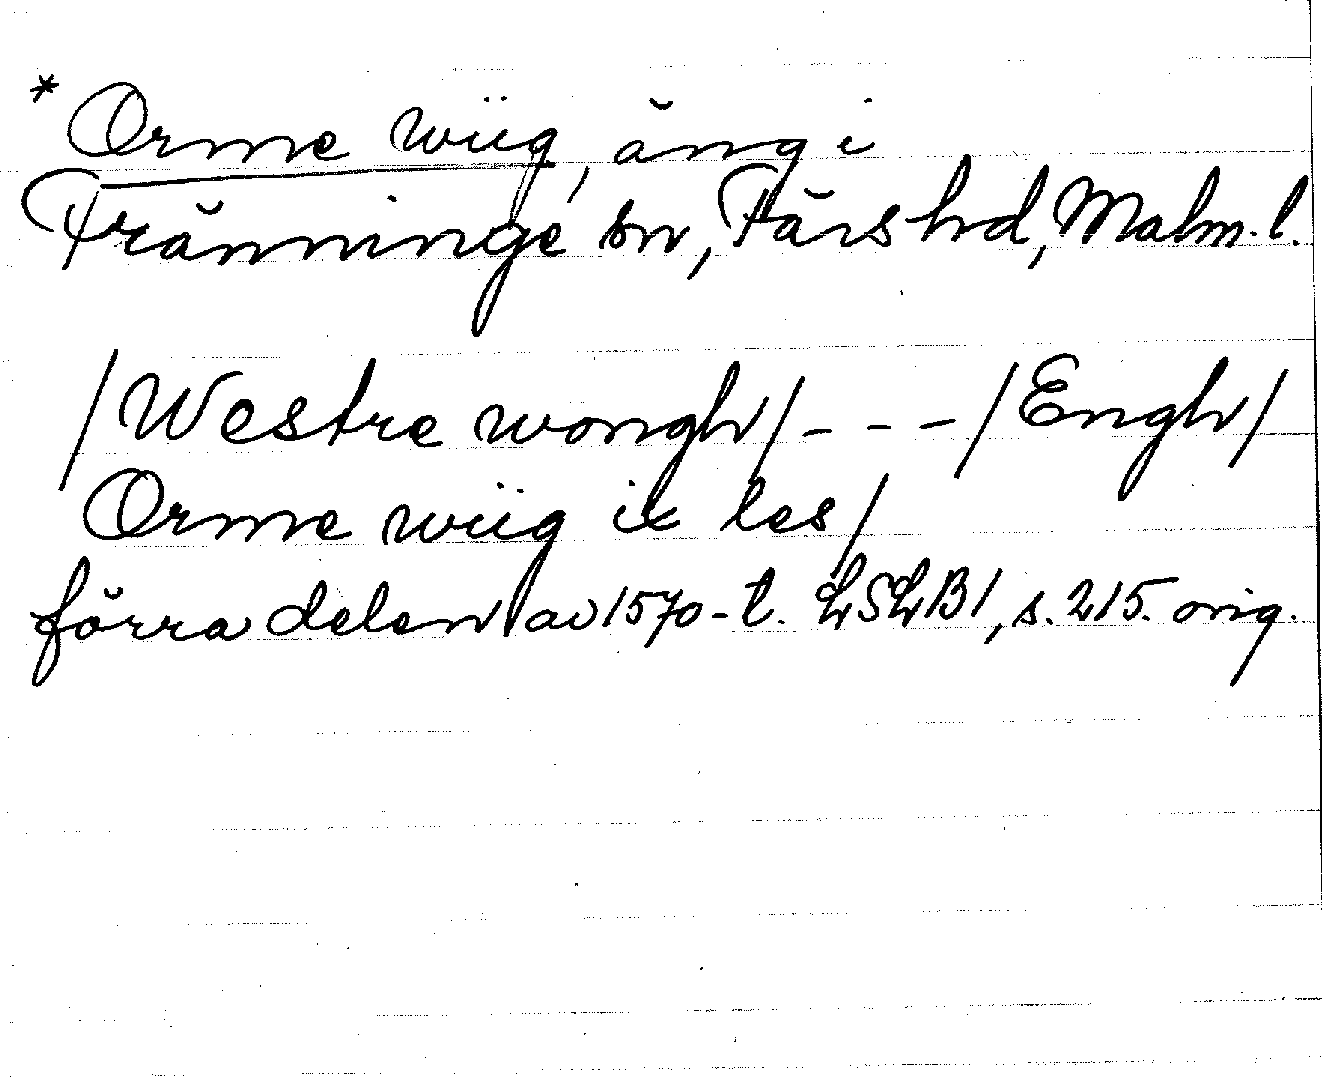 * Orme wiig, äng i
Fränninge sn, Färs hd, Malm. l.
/Westre wongh/ - - - /Engh/
Orme wiig ix les/
förra delen av 1570-t. LSLB1, s. 215. orig.